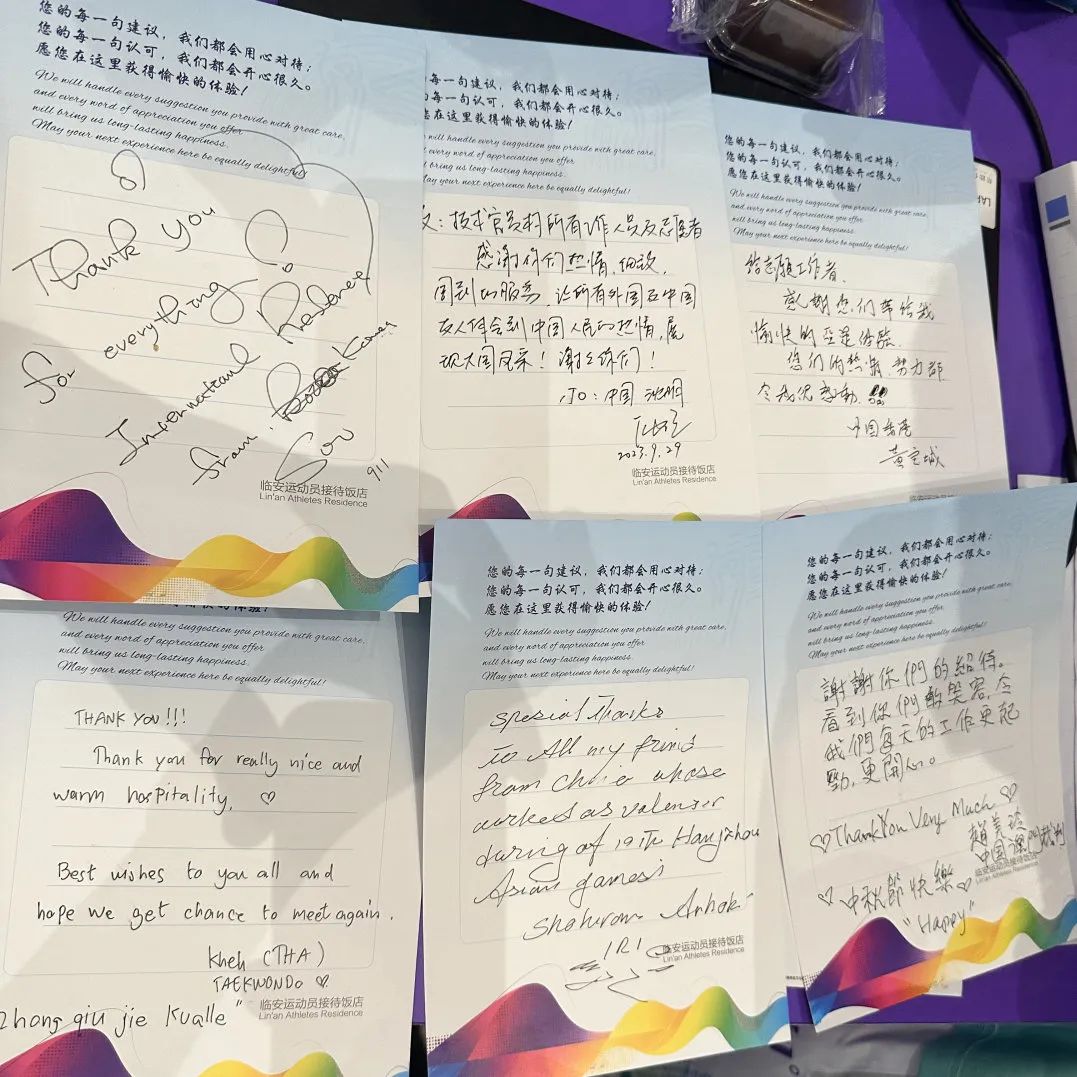 您的每一句建议，我们都会用心对待；
您的每一句认可，我们都会开心很久。
愿您在这里获得愉快的体验！
We will handle every suggestion you provide with great care,
and every word of appreciation you offer
will bring us long-lasting happiness.
May your next experience here be equally delightful!
Thank you
for everything
International Referee
from. Korea
Goo
911
临安运动员接待饭店
Lin'an Athletes Residence
每一句建议，我们都会用心对待；
每一句认可，我们都会开心很久。
您在这里获得愉快的体验！
will handle every suggestion you provide with great care,
every word of appreciation you offer
will bring us long-lasting happiness.
May your next experience here be equally delightful!
技术官员村所有工作人员及志愿者
感谢你们热情、细致、
周到的服务，让所有外国及中国
友人体会到中国人民的热情，展
现大国风采！谢谢你们！
TO：中国
2023.9.29
您的每一句建议，我们都会用心对待；
您的每一句认可，我们都会开心很久。
愿您在这里获得愉快的体验！
We will handle every suggestion you provide with great care,
and every word of appreciation you offer
will bring us long-lasting happiness.
May your next experience here be equally delightful!
给志愿工作者，
感謝您们带给我
愉快的亞運经驗，
您们的热情 努力都
令我很感動!!
中国香港
黄定城
临安运动员接待饭店
愿您在这里获得愉快的体验！
We will handle every suggestion you provide with great care,
and every word of appreciation you offer
will bring us long-lasting happiness.
May your next experience here be equally delightful!
THANK YOU!!!
Thank you for really nice and
warm hospitality. ♡
Best wishes to you all and
hope we get chance to meet again.
Kheh (THA)
TAEKWONDO ♡
Zhong qiu jie Kualle"
临安运动员接待饭店
Lin'an Athletes Residence
您的每一句建议，我们都会用心对待；
您的每一句认可，我们都会开心很久。
愿您在这里获得愉快的体验！
We will handle every suggestion you provide with great care,
and every word of appreciation you offer
will bring us long-lasting happiness.
May your next experience here be equally delightful!
spesial Thanks
To All my frind
from chnie whose
workest as valenser
during of 19Th Hangzhou
Asian games
IRI
临安运动员接待饭店
Lin'an Athletes Residence
您的每一句建议，我们都会用心对待；
您的每一句认可，我们都会开心很久。
愿您在这里获得愉快的体验！
We will handle every suggestion you provide with great care,
and every word of appreciation you offer
will bring us long-lasting happiness.
May your next experience here be equally delightful!
謝謝你們的紹待。
看到你們的笑容,令
我們每天的工作更起
勁,更開心。
♡ThankYou Very Much♡
趙美玲
中国澳門裁判
♡中秋節快樂♡
"Happy"
临安运动员接待饭店
Lin'an Athletes Residence